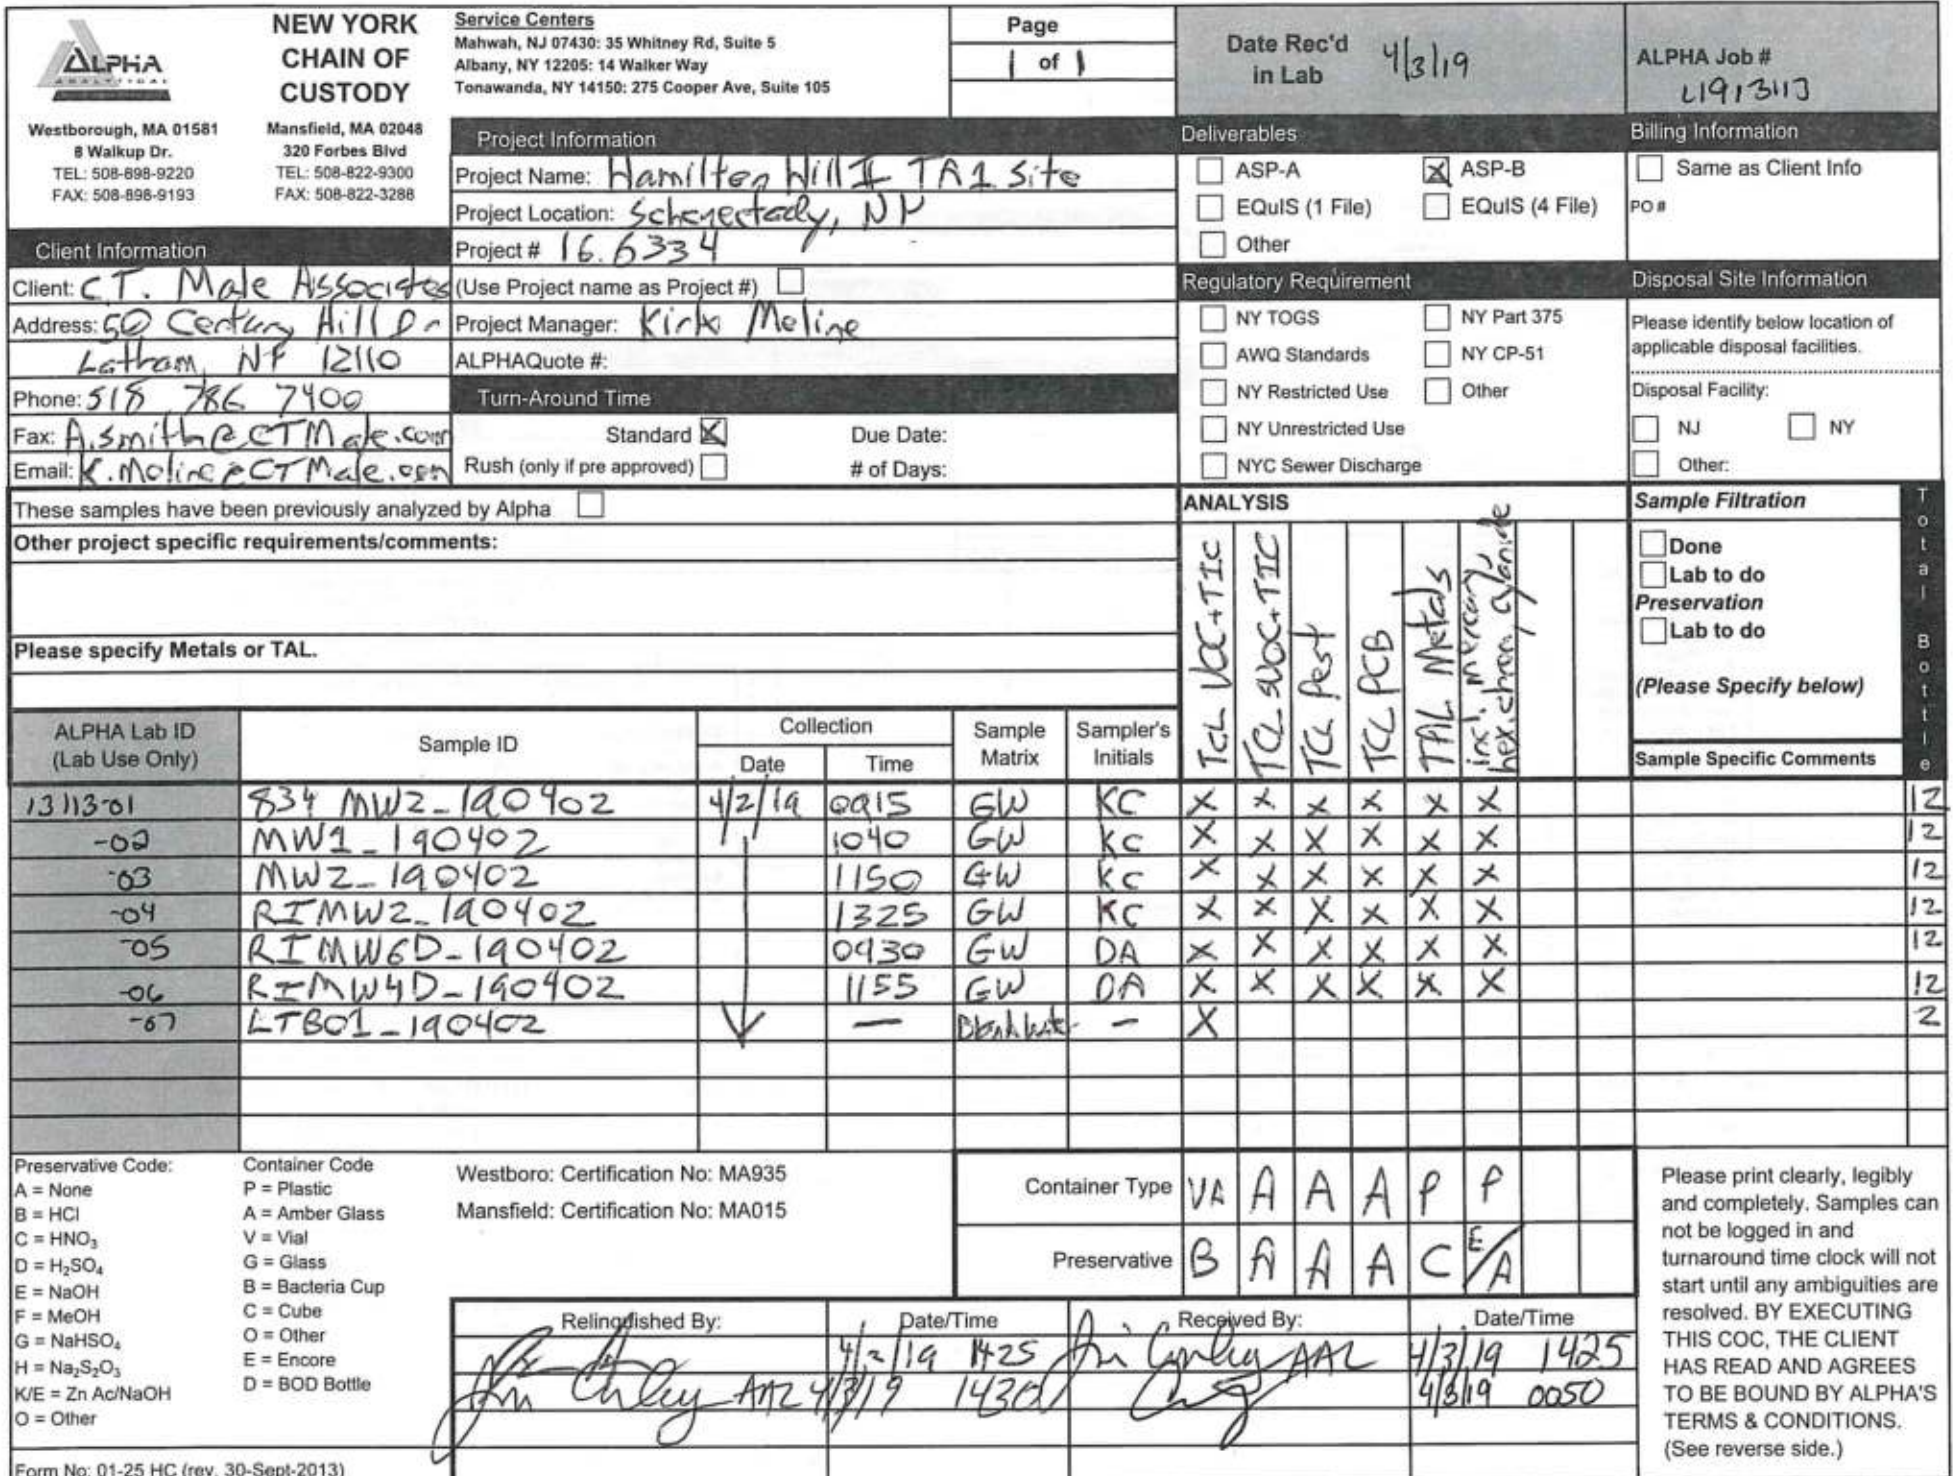 ALPHA
ANALYTICAL
NEW YORK
CHAIN OF
CUSTODY
Westborough, MA 01581
8 Walkup Dr.
TEL: 508-898-9220
FAX: 508-898-9193
Mansfield, MA 02048
320 Forbes Blvd
TEL: 508-822-9300
FAX: 508-822-3288
Service Centers
Mahwah, NJ 07430: 35 Whitney Rd, Suite 5
Albany, NY 12205: 14 Walker Way
Tonawanda, NY 14150: 275 Cooper Ave, Suite 105
Page
1 of 1
Date Rec'd
in Lab 4/3/19
ALPHA Job #
L1913113
Client Information
Client: C.T. Male Associates
Address: 50 Century Hill Dr
Latham, NY 12110
Phone: 518 786 7400
Fax: A.smith@CTMale.com
Email: K.Moline@CTMale.com
Project Information
Project Name: Hamilton Hill II TA1 Site
Project Location: Schenectady, NY
Project # 16.6334
(Use Project name as Project #)
Project Manager: Kirk Moline
ALPHAQuote #:
Turn-Around Time
Standard X Due Date:
Rush (only if pre approved) # of Days:
Deliverables
ASP-A X ASP-B
EQuIS (1 File) EQuIS (4 File)
Other
Regulatory Requirement
NY TOGS NY Part 375
AWQ Standards NY CP-51
NY Restricted Use Other
NY Unrestricted Use
NYC Sewer Discharge
Billing Information
Same as Client Info
PO #
Disposal Site Information
Please identify below location of
applicable disposal facilities.
Disposal Facility:
NJ NY
Other:
These samples have been previously analyzed by Alpha
Other project specific requirements/comments:
Please specify Metals or TAL.
ANALYSIS
TCL VOC+TIC
TCL SVOC+TIC
TCL Pest
TCL PCB
TAL Metals
incl. mercury
hex. chrom, cyanide
Sample Filtration
Done
Lab to do
Preservation
Lab to do
(Please Specify below)
Total Bottle
ALPHA Lab ID
(Lab Use Only)
Sample ID
Collection
Date Time
Sample
Matrix
Sampler's
Initials
Sample Specific Comments
13113-01 834 MW2_190402 4/2/19 0915 GW KC X X X X X X 12
-02 MW1_190402 1040 GW KC X X X X X X 12
-03 MW2_190402 1150 GW KC X X X X X X 12
-04 RIMW2_190402 1325 GW KC X X X X X X 12
-05 RIMW6D_190402 0930 GW DA X X X X X X 12
-06 RIMW4D_190402 1155 GW DA X X X X X X 12
-07 LTB01_190402 — Blank - X 2
Preservative Code:
A = None
B = HCl
C = HNO3
D = H2SO4
E = NaOH
F = MeOH
G = NaHSO4
H = Na2S2O3
K/E = Zn Ac/NaOH
O = Other
Container Code
P = Plastic
A = Amber Glass
V = Vial
G = Glass
B = Bacteria Cup
C = Cube
O = Other
E = Encore
D = BOD Bottle
Westboro: Certification No: MA935
Mansfield: Certification No: MA015
Container Type VA A A A P P
Preservative B A A A C E/A
Relinquished By: Date/Time Received By: Date/Time
4/2/19 1425 AAL 4/3/19 1425
AAL 4/3/19 1430 4/3/19 0050
Please print clearly, legibly
and completely. Samples can
not be logged in and
turnaround time clock will not
start until any ambiguities are
resolved. BY EXECUTING
THIS COC, THE CLIENT
HAS READ AND AGREES
TO BE BOUND BY ALPHA'S
TERMS & CONDITIONS.
(See reverse side.)
Form No: 01-25 HC (rev. 30-Sept-2013)